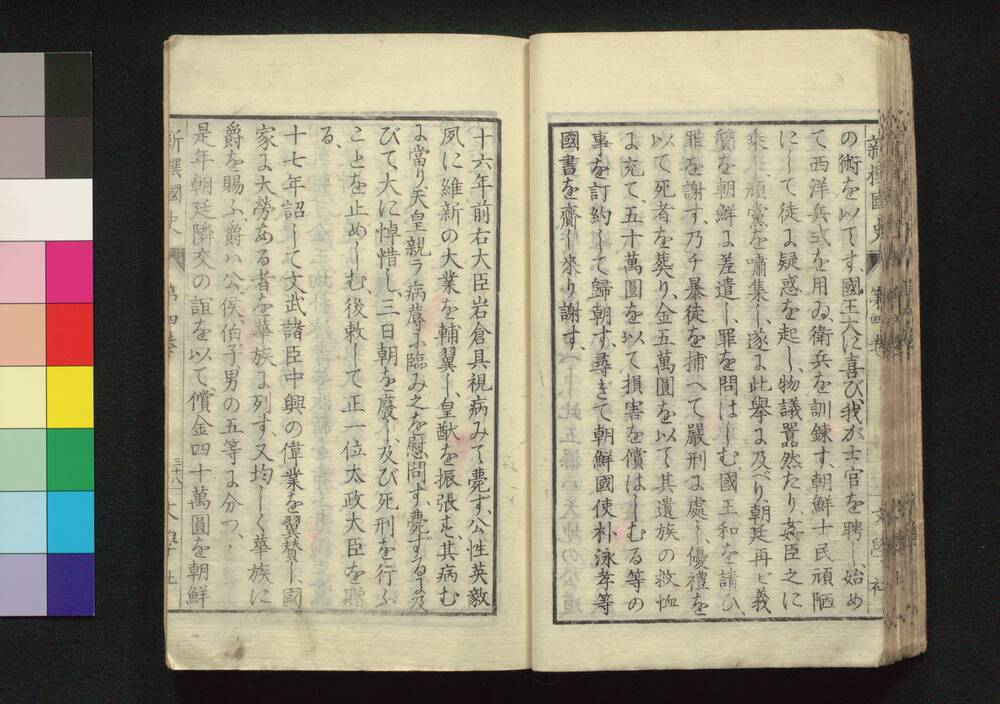 新撰國史 第四卷 文學社
の術を以てす、國王大に喜び、我が士官を聘し、始め
て西洋兵式を用ゐ、衛兵を訓錬す、朝鮮士民頑陋
にして徒に疑惑を起し、物議囂然たり、姦臣之に
乘じ、頑黨を嘯集し、遂に此擧に及べり、朝廷再ビ義
質を朝鮮に差遣し、罪を問はしむ、國王和を請ひ、
罪を謝す、乃チ暴徒を捕へて嚴刑に處し、優禮を
以て死者を葬り、金五萬圓を以て其遺族の救恤
に充て、五十萬圓を以て損害を償はしむる等の
事を訂約して歸朝す、尋ぎて朝鮮國使朴泳孝等
國書を齎し來り謝す、
十六年前右大臣岩倉具視病みて薨ず、公性英敏
夙に維新の大業を輔翼し、皇猷を振張す、其病む
に當り、天皇親ラ病蓐に臨み之を慰問す、薨ずるに及
びて大に悼惜し、三日朝を廢し、及び死刑を行ふ
ことを止めしむ、後敕して正一位太政大臣を贈
る、
十七年詔して文武諸臣中興の偉業を翼贊し、國
家に大勞ある者を華族に列す、又均しく華族に
爵を賜ふ、爵ハ公、侯、伯、子、男の五等に分つ、
是年朝廷隣交の誼を以て、償金四十萬圓を朝鮮
新撰國史 第四卷 三十八 文學社